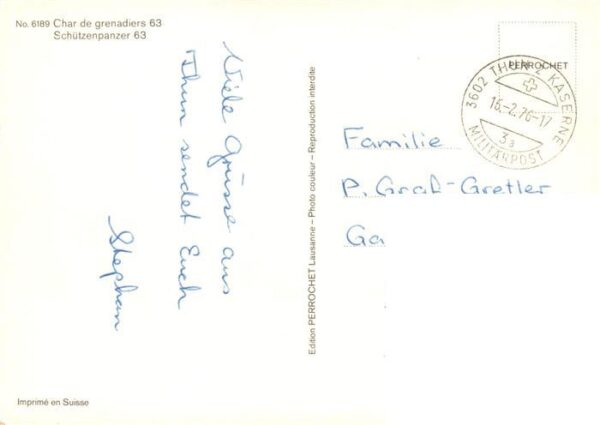 No. 6189 Char de grenadiers 63
Schützenpanzer 63
Viele Grüsse aus
Thun sendet Euch
Stephan
Imprimé en Suisse
Edition PERROCHET Lausanne – Photo couleur – Reproduction interdite
PERROCHET
3602 THUN 2 KASERNE
15.-2.76-17
3a
MILITÄRPOST
Familie
P. Grab-Gretler
Ga